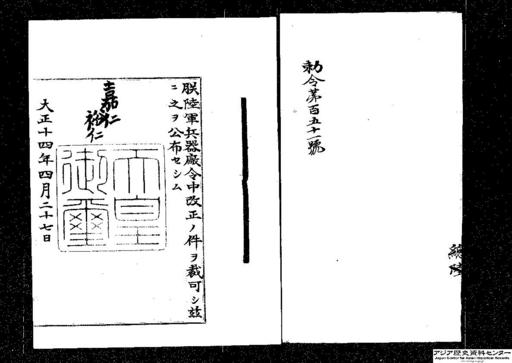 勅令第百五十一號
朕陸軍兵器廠令中改正ノ件ヲ裁可シ茲
ニ之ヲ公布セシム
嘉仁
裕仁
天皇
御璽
大正十四年四月二十七日
アジア歴史資料センター
Japan Center for Asian Historical Records